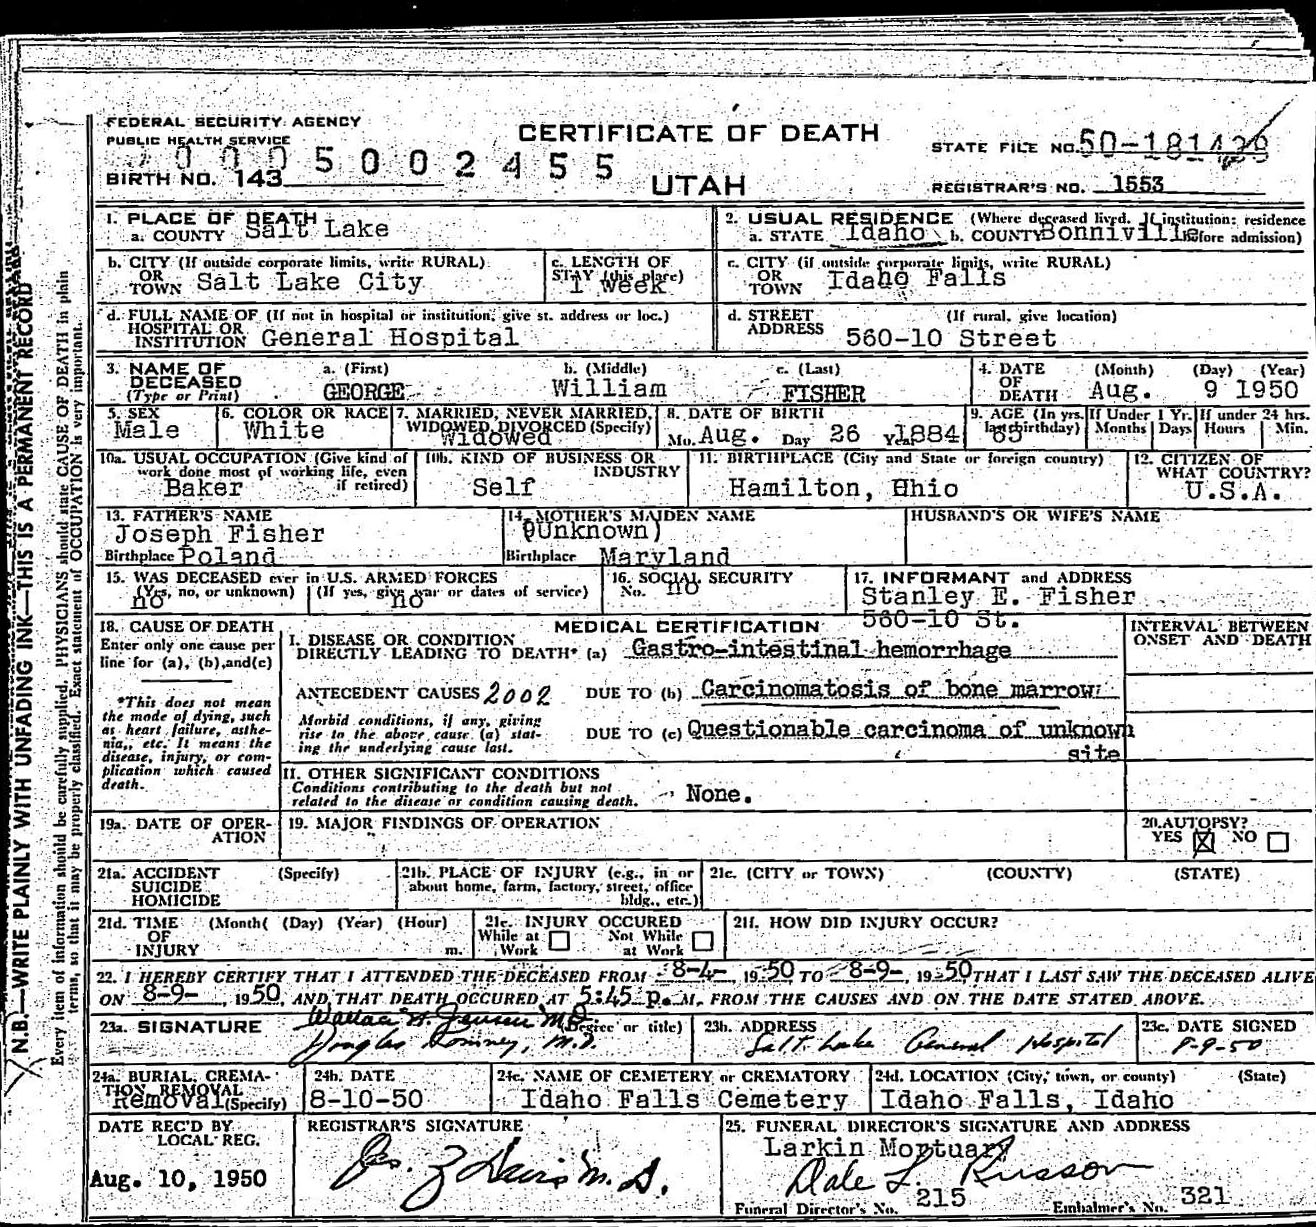 FEDERAL SECURITY AGENCY
PUBLIC HEALTH SERVICE
CERTIFICATE OF DEATH
STATE FILE NO. 50-181429
5 0 0 2 4 5 5
BIRTH NO. 143
UTAH
REGISTRAR'S NO. 1553
1. PLACE OF DEATH
a. COUNTY Salt Lake
2. USUAL RESIDENCE (Where deceased lived. If institution: residence before admission)
a. STATE Idaho b. COUNTY Bonniville
b. CITY (If outside corporate limits, write RURAL)
OR TOWN Salt Lake City
c. LENGTH OF STAY (this place)
1 Week
c. CITY (if outside corporate limits, write RURAL)
OR TOWN Idaho Falls
d. FULL NAME OF (If not in hospital or institution, give st. address or loc.)
HOSPITAL OR INSTITUTION General Hospital
d. STREET ADDRESS (If rural, give location)
560-10 Street
3. NAME OF DECEASED (Type or Print)
a. (First) GEORGE
b. (Middle) William
c. (Last) FISHER
4. DATE OF DEATH (Month) (Day) (Year)
Aug. 9 1950
5. SEX
Male
6. COLOR OR RACE
White
7. MARRIED, NEVER MARRIED, WIDOWED, DIVORCED (Specify)
Widowed
8. DATE OF BIRTH
Mo. Aug. Day 26 Year 1884
9. AGE (In yrs. last birthday)
65
If Under 1 Yr. Months Days
If under 24 hrs. Hours Min.
10a. USUAL OCCUPATION (Give kind of work done most of working life, even if retired)
Baker
10b. KIND OF BUSINESS OR INDUSTRY
Self
11. BIRTHPLACE (City and State or foreign country)
Hamilton, Ohio
12. CITIZEN OF WHAT COUNTRY?
U.S.A.
13. FATHER'S NAME
Joseph Fisher
Birthplace Poland
14. MOTHER'S MAIDEN NAME
(Unknown)
Birthplace Maryland
HUSBAND'S OR WIFE'S NAME
15. WAS DECEASED ever in U.S. ARMED FORCES
(Yes, no, or unknown) (If yes, give war or dates of service)
no no
16. SOCIAL SECURITY
No. no
17. INFORMANT and ADDRESS
Stanley E. Fisher
560-10 St.
18. CAUSE OF DEATH
Enter only one cause per
line for (a), (b), and (c)
*This does not mean
the mode of dying, such
as heart failure, asthe-
nia, etc. It means the
disease, injury, or com-
plication which caused
death.
MEDICAL CERTIFICATION
INTERVAL BETWEEN
ONSET AND DEATH
I. DISEASE OR CONDITION
DIRECTLY LEADING TO DEATH* (a) Gastro-intestinal hemorrhage
ANTECEDENT CAUSES 2002 DUE TO (b) Carcinomatosis of bone marrow
Morbid conditions, if any, giving
rise to the above cause (a) stat-
ing the underlying cause last.
DUE TO (c) Questionable carcinoma of unknown
site
II. OTHER SIGNIFICANT CONDITIONS
Conditions contributing to the death but not
related to the disease or condition causing death.
None.
19a. DATE OF OPER-
ATION
19. MAJOR FINDINGS OF OPERATION
20. AUTOPSY?
YES X NO
21a. ACCIDENT (Specify)
SUICIDE
HOMICIDE
21b. PLACE OF INJURY (e.g., in or
about home, farm, factory, street, office
bldg., etc.)
21c. (CITY or TOWN) (COUNTY) (STATE)
21d. TIME (Month( (Day) (Year) (Hour)
OF
INJURY m.
21e. INJURY OCCURED
While at Work Not While at Work
21f. HOW DID INJURY OCCUR?
22. I HEREBY CERTIFY THAT I ATTENDED THE DECEASED FROM 8-4-, 1950 TO 8-9-, 1950, THAT I LAST SAW THE DECEASED ALIVE
ON 8-9-, 1950, AND THAT DEATH OCCURED AT 5:45 P. M. FROM THE CAUSES AND ON THE DATE STATED ABOVE.
23a. SIGNATURE (Degree or title)
Wallace H. Jensen M.D.
Douglas Romney, M.D.
23b. ADDRESS
Salt Lake General Hospital
23c. DATE SIGNED
8-9-50
24a. BURIAL, CREMA-
TION, REMOVAL (Specify)
Removal
24b. DATE
8-10-50
24c. NAME OF CEMETERY or CREMATORY
Idaho Falls Cemetery
24d. LOCATION (City, town, or county) (State)
Idaho Falls, Idaho
DATE REC'D BY
LOCAL REG.
Aug. 10, 1950
REGISTRAR'S SIGNATURE
M.D.
25. FUNERAL DIRECTOR'S SIGNATURE AND ADDRESS
Larkin Mortuary
Dale L. Russon
Funeral Director's No. 215 Embalmer's No. 321
N.B.—WRITE PLAINLY WITH UNFADING INK—THIS IS A PERMANENT RECORD
Every item of information should be carefully supplied. PHYSICIANS should state CAUSE OF DEATH in plain
terms, so that it may be properly classified. Exact statement of OCCUPATION is very important.